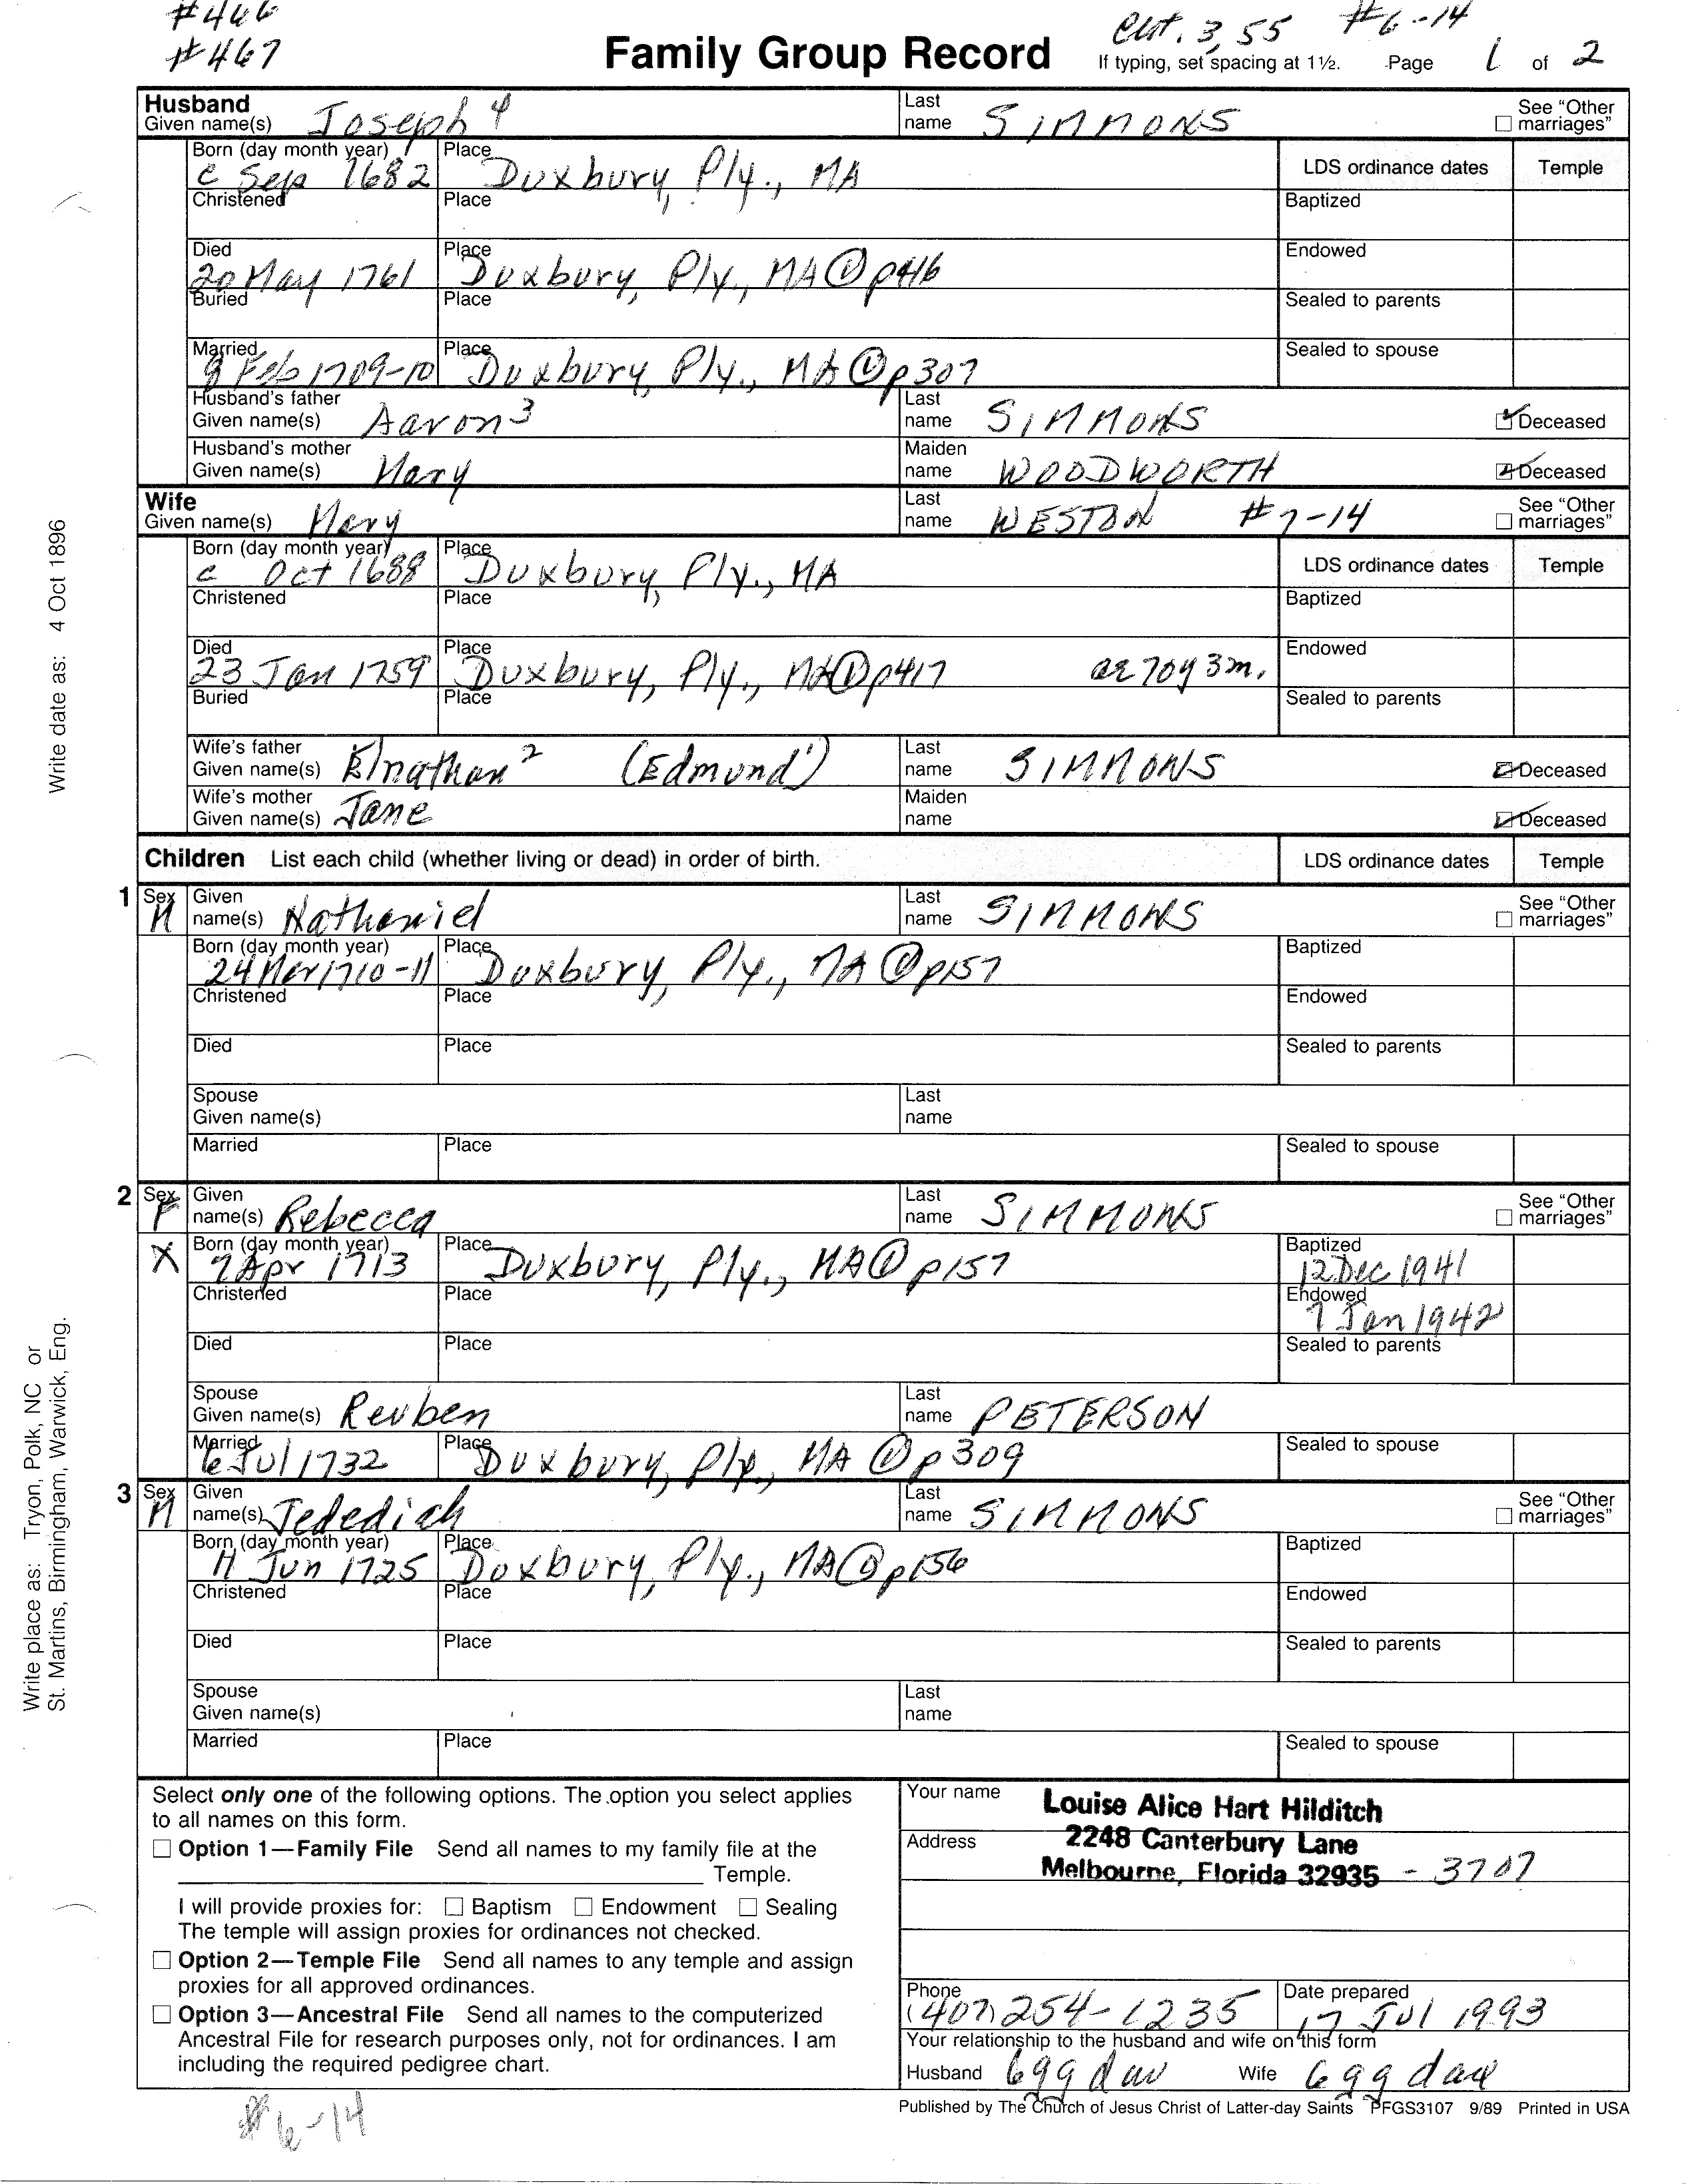 #466
#467
Family Group Record
#6-14
If typing, set spacing at 1½. Page 1 of 2
Husband
Given name(s) Joseph 4 Last name SIMMONS See "Other marriages"
Born (day month year) c Sep 1682 Place Duxbury, Ply., MA LDS ordinance dates Temple
Christened Place Baptized
Died 20 May 1761 Place Duxbury, Ply., MA ① p416 Endowed
Buried Place Sealed to parents
Married 8 Feb 1709-10 Place Duxbury, Ply., MA ① p307 Sealed to spouse
Husband's father
Given name(s) Aaron 3 Last name SIMMONS Deceased
Husband's mother
Given name(s) Mary Maiden name WOODWORTH Deceased
Wife
Given name(s) Mary Last name WESTON #7-14 See "Other marriages"
Born (day month year) c Oct 1688 Place Duxbury, Ply., MA LDS ordinance dates Temple
Christened Place Baptized
Died 23 Jan 1759 Place Duxbury, Ply., MA ① p417 ae 70y 3m. Endowed
Buried Place Sealed to parents
Wife's father
Given name(s) Elnathan 2 (Edmund 1) Last name SIMMONS Deceased
Wife's mother
Given name(s) Jane Maiden name Deceased
Children List each child (whether living or dead) in order of birth. LDS ordinance dates Temple
1 Sex M Given name(s) Nathaniel Last name SIMMONS See "Other marriages"
Born (day month year) 24 Mar 1710-11 Place Duxbury, Ply., MA ① p157 Baptized
Christened Place Endowed
Died Place Sealed to parents
Spouse
Given name(s) Last name
Married Place Sealed to spouse
2 Sex F Given name(s) Rebecca Last name SIMMONS See "Other marriages"
X Born (day month year) 7 Apr 1713 Place Duxbury, Ply., MA ① p157 Baptized 12 Dec 1941
Christened Place Endowed 7 Jan 1942
Died Place Sealed to parents
Spouse
Given name(s) Reuben Last name PETERSON
Married 6 Jul 1732 Place Duxbury, Ply., MA ① p309 Sealed to spouse
3 Sex M Given name(s) Jedediah Last name SIMMONS See "Other marriages"
Born (day month year) 11 Jun 1725 Place Duxbury, Ply., MA ① p156 Baptized
Christened Place Endowed
Died Place Sealed to parents
Spouse
Given name(s) Last name
Married Place Sealed to spouse
Select only one of the following options. The option you select applies
to all names on this form.
Option 1—Family File Send all names to my family file at the
Temple.
I will provide proxies for: Baptism Endowment Sealing
The temple will assign proxies for ordinances not checked.
Option 2—Temple File Send all names to any temple and assign
proxies for all approved ordinances.
Option 3—Ancestral File Send all names to the computerized
Ancestral File for research purposes only, not for ordinances. I am
including the required pedigree chart.
Your name Louise Alice Hart Hilditch
Address 2248 Canterbury Lane
Melbourne, Florida 32935 - 3707
Phone (407) 254-1235 Date prepared 17 Jul 1993
Your relationship to the husband and wife on this form
Husband 6gg dau Wife 6gg dau
Published by The Church of Jesus Christ of Latter-day Saints PFGS3107 9/89 Printed in USA
#6-14
Write date as: 4 Oct 1896
Write place as: Tryon, Polk, NC or
St. Martins, Birmingham, Warwick, Eng.